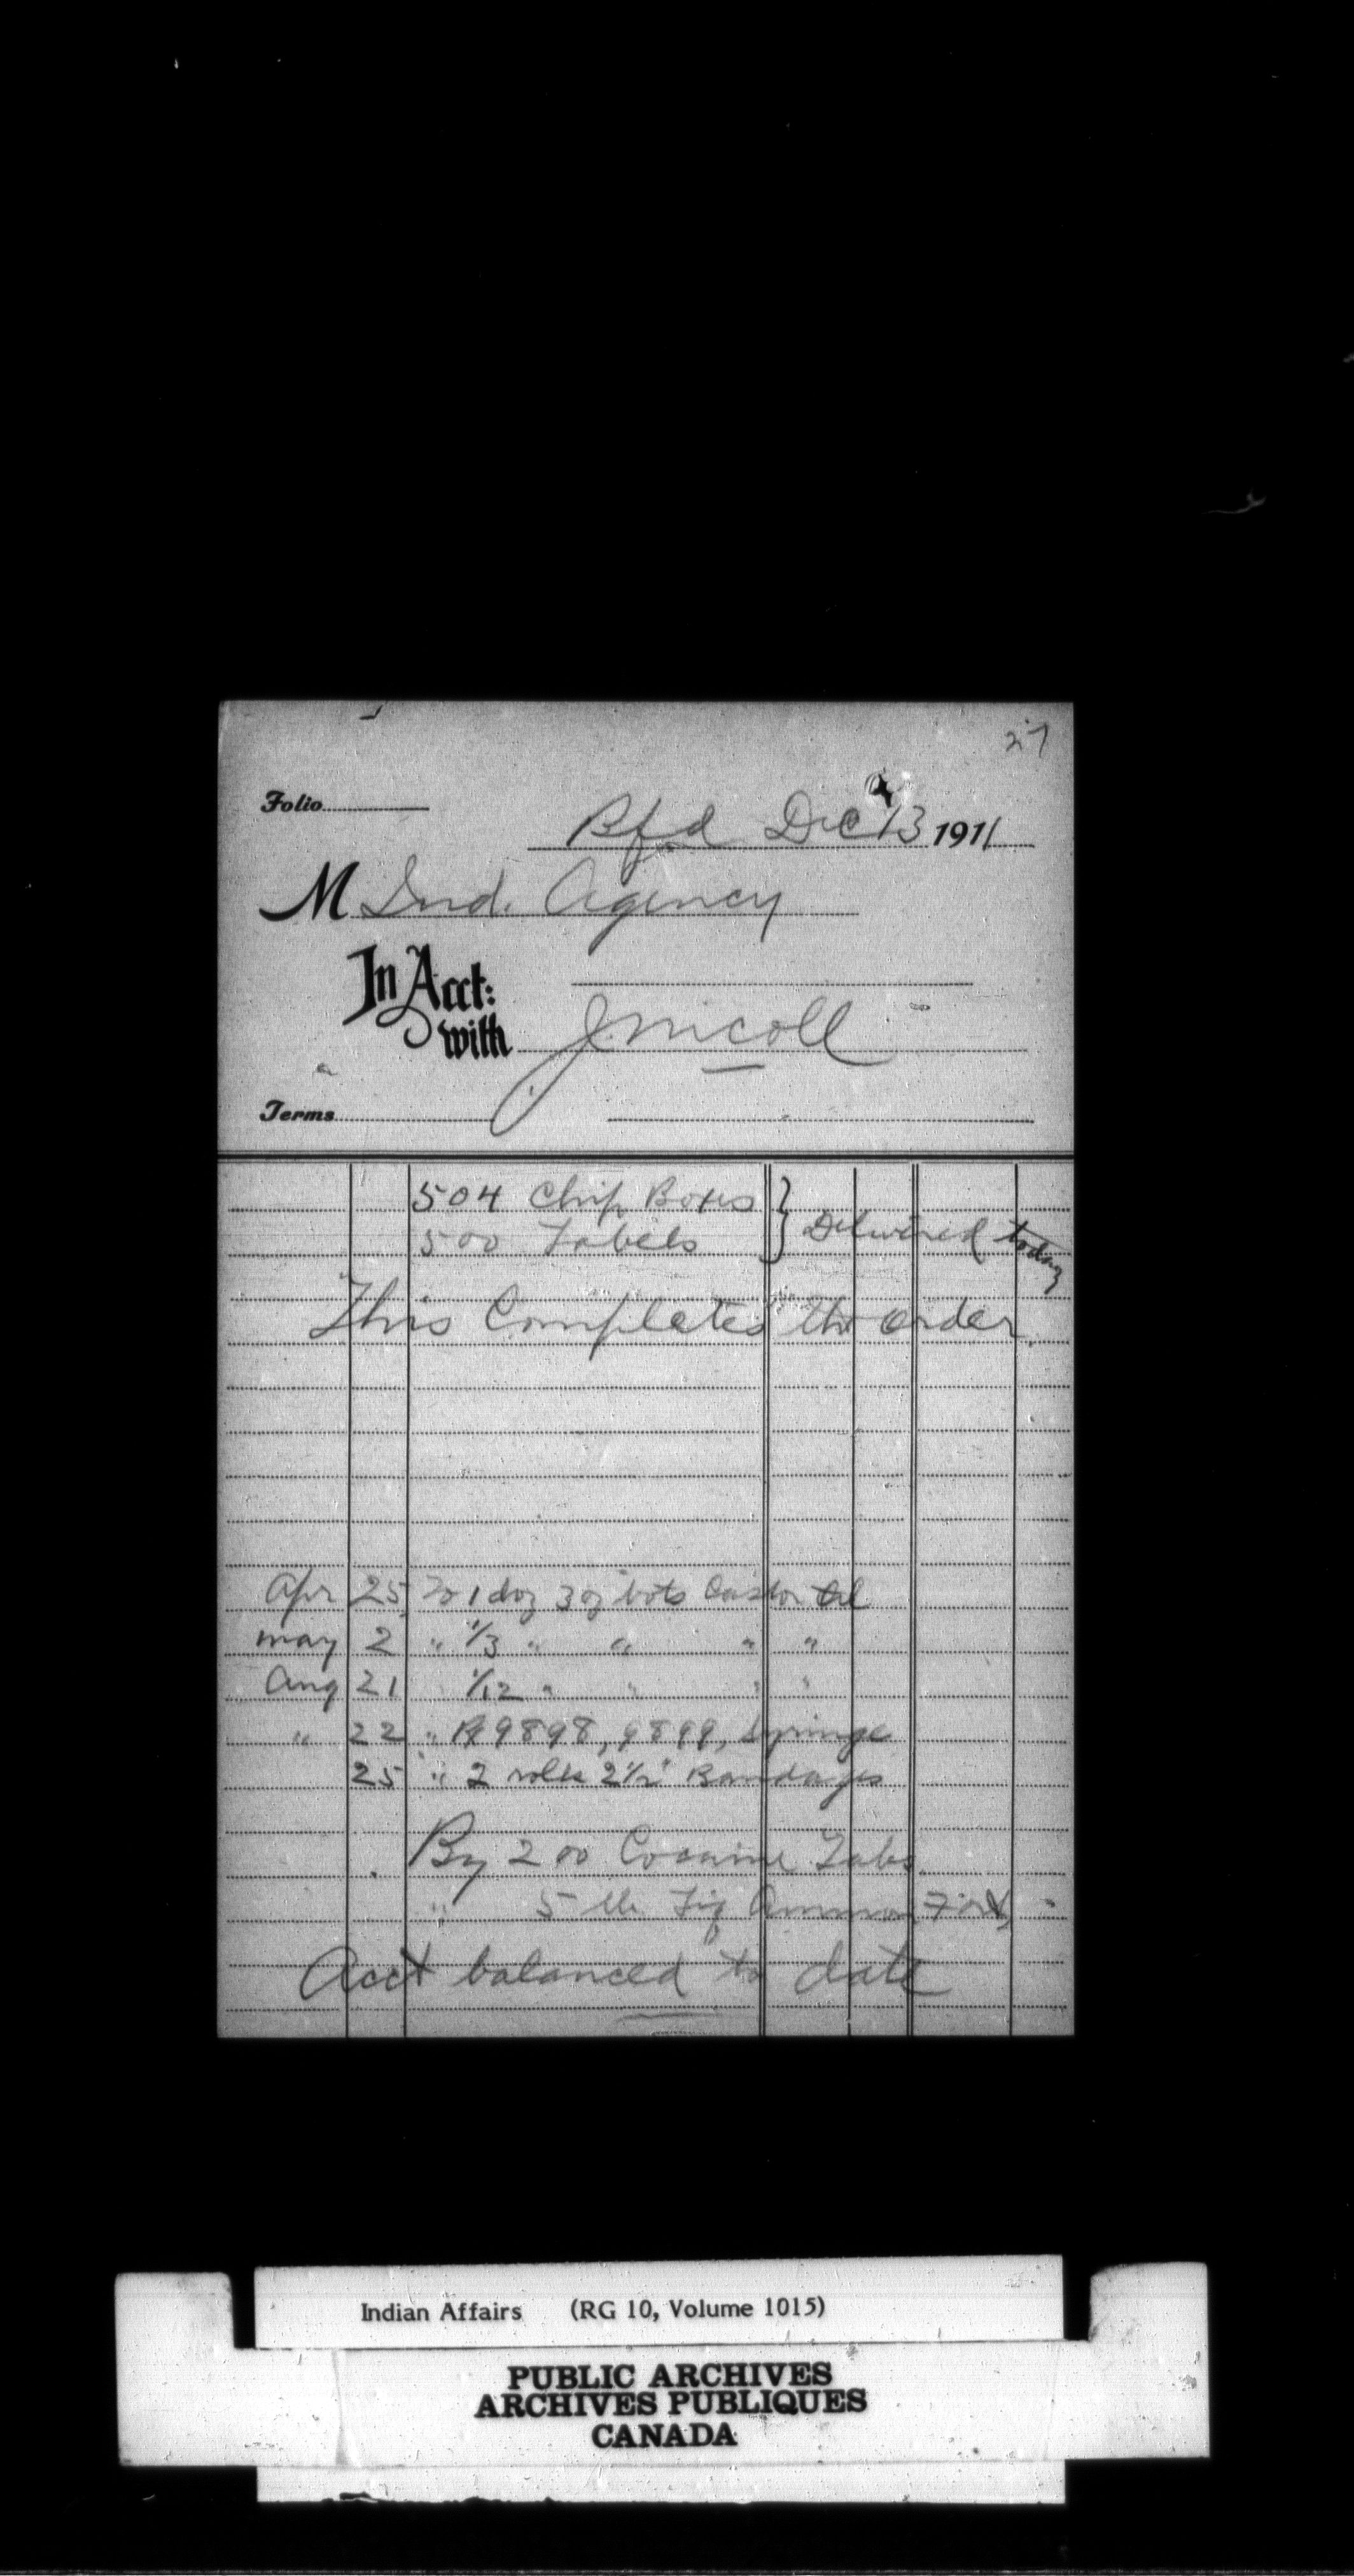 27
Folio
Bfd Dec 13 1911
M Ind. Agency
In Acct:
with J. Nicoll
Terms
504 Chip Boxes
500 Labels } Delivered today
This Completes the order
Apr 25 To 1 doz 3 oz bots Castor Oil
May 2 " 1/3 " " " "
Aug 21 1/12 " " " "
" 22 " Rx 9898, 9899, Syringe
25 " 2 rolls 2 1/2" Bandages
By 200 Cocaine Tabs
" 5 lb. Liq Ammon Fort,
Acct balanced to date
Indian Affairs (RG 10, Volume 1015)
PUBLIC ARCHIVES
ARCHIVES PUBLIQUES
CANADA